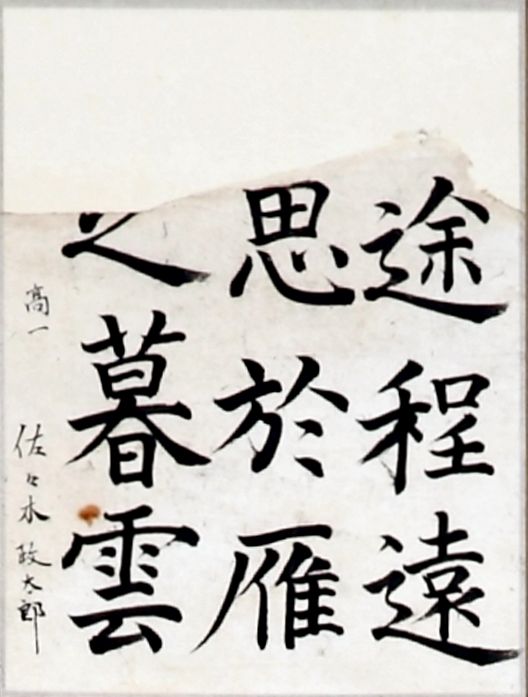 途程遠
思於雁
之暮雲
高一 佐々木政太郎